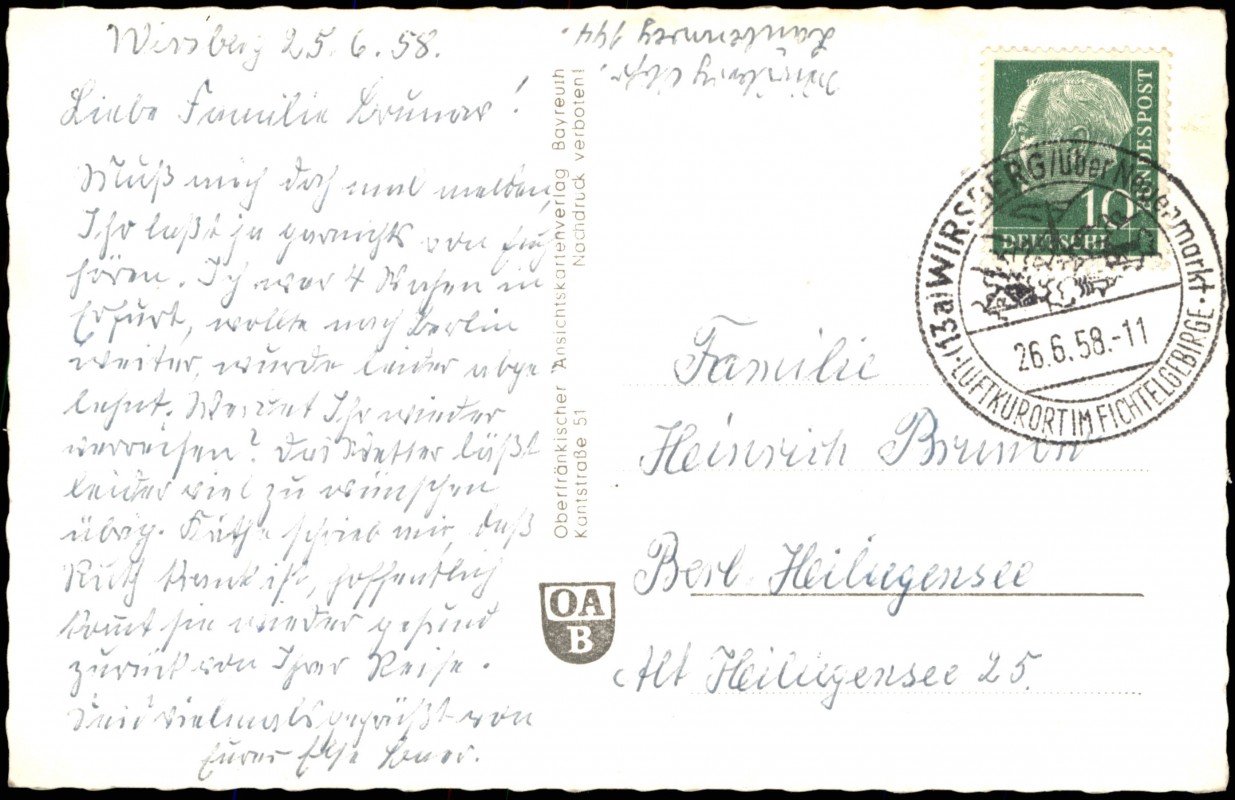 Wirsberg 25.6.58.
Liebe Familie Brunow!
Muß mich doch mal melden,
Ihr laßt ja garnichts von Euch
hören. Ich war 4 Wochen in
Erfurt, wollte nach Berlin
weiter, wurde leider abge
lehnt. Werdet Ihr wieder
verreisen? Das Wetter läßt
leider viel zu wünschen
übrig. Käthe schrieb mir, daß
Ruth krank ist, hoffentlich
kommt sie wieder gesund
zurück von Ihrer Reise.
Seid vielmals gegrüßt von
Eurer Else
Oberfränkischer Ansichtskartenverlag Bayreuth
Kantstraße 51 Nachdruck verboten!
OA
B
10
DEUTSCHE
BUNDESPOST
(13a) WIRSBERG / über Neuenmarkt
26.6.58.-11
LUFTKURORT IM FICHTELGEBIRGE
Familie
Heinrich Brunow
Berl. Heiligensee
Alt Heiligensee 25.